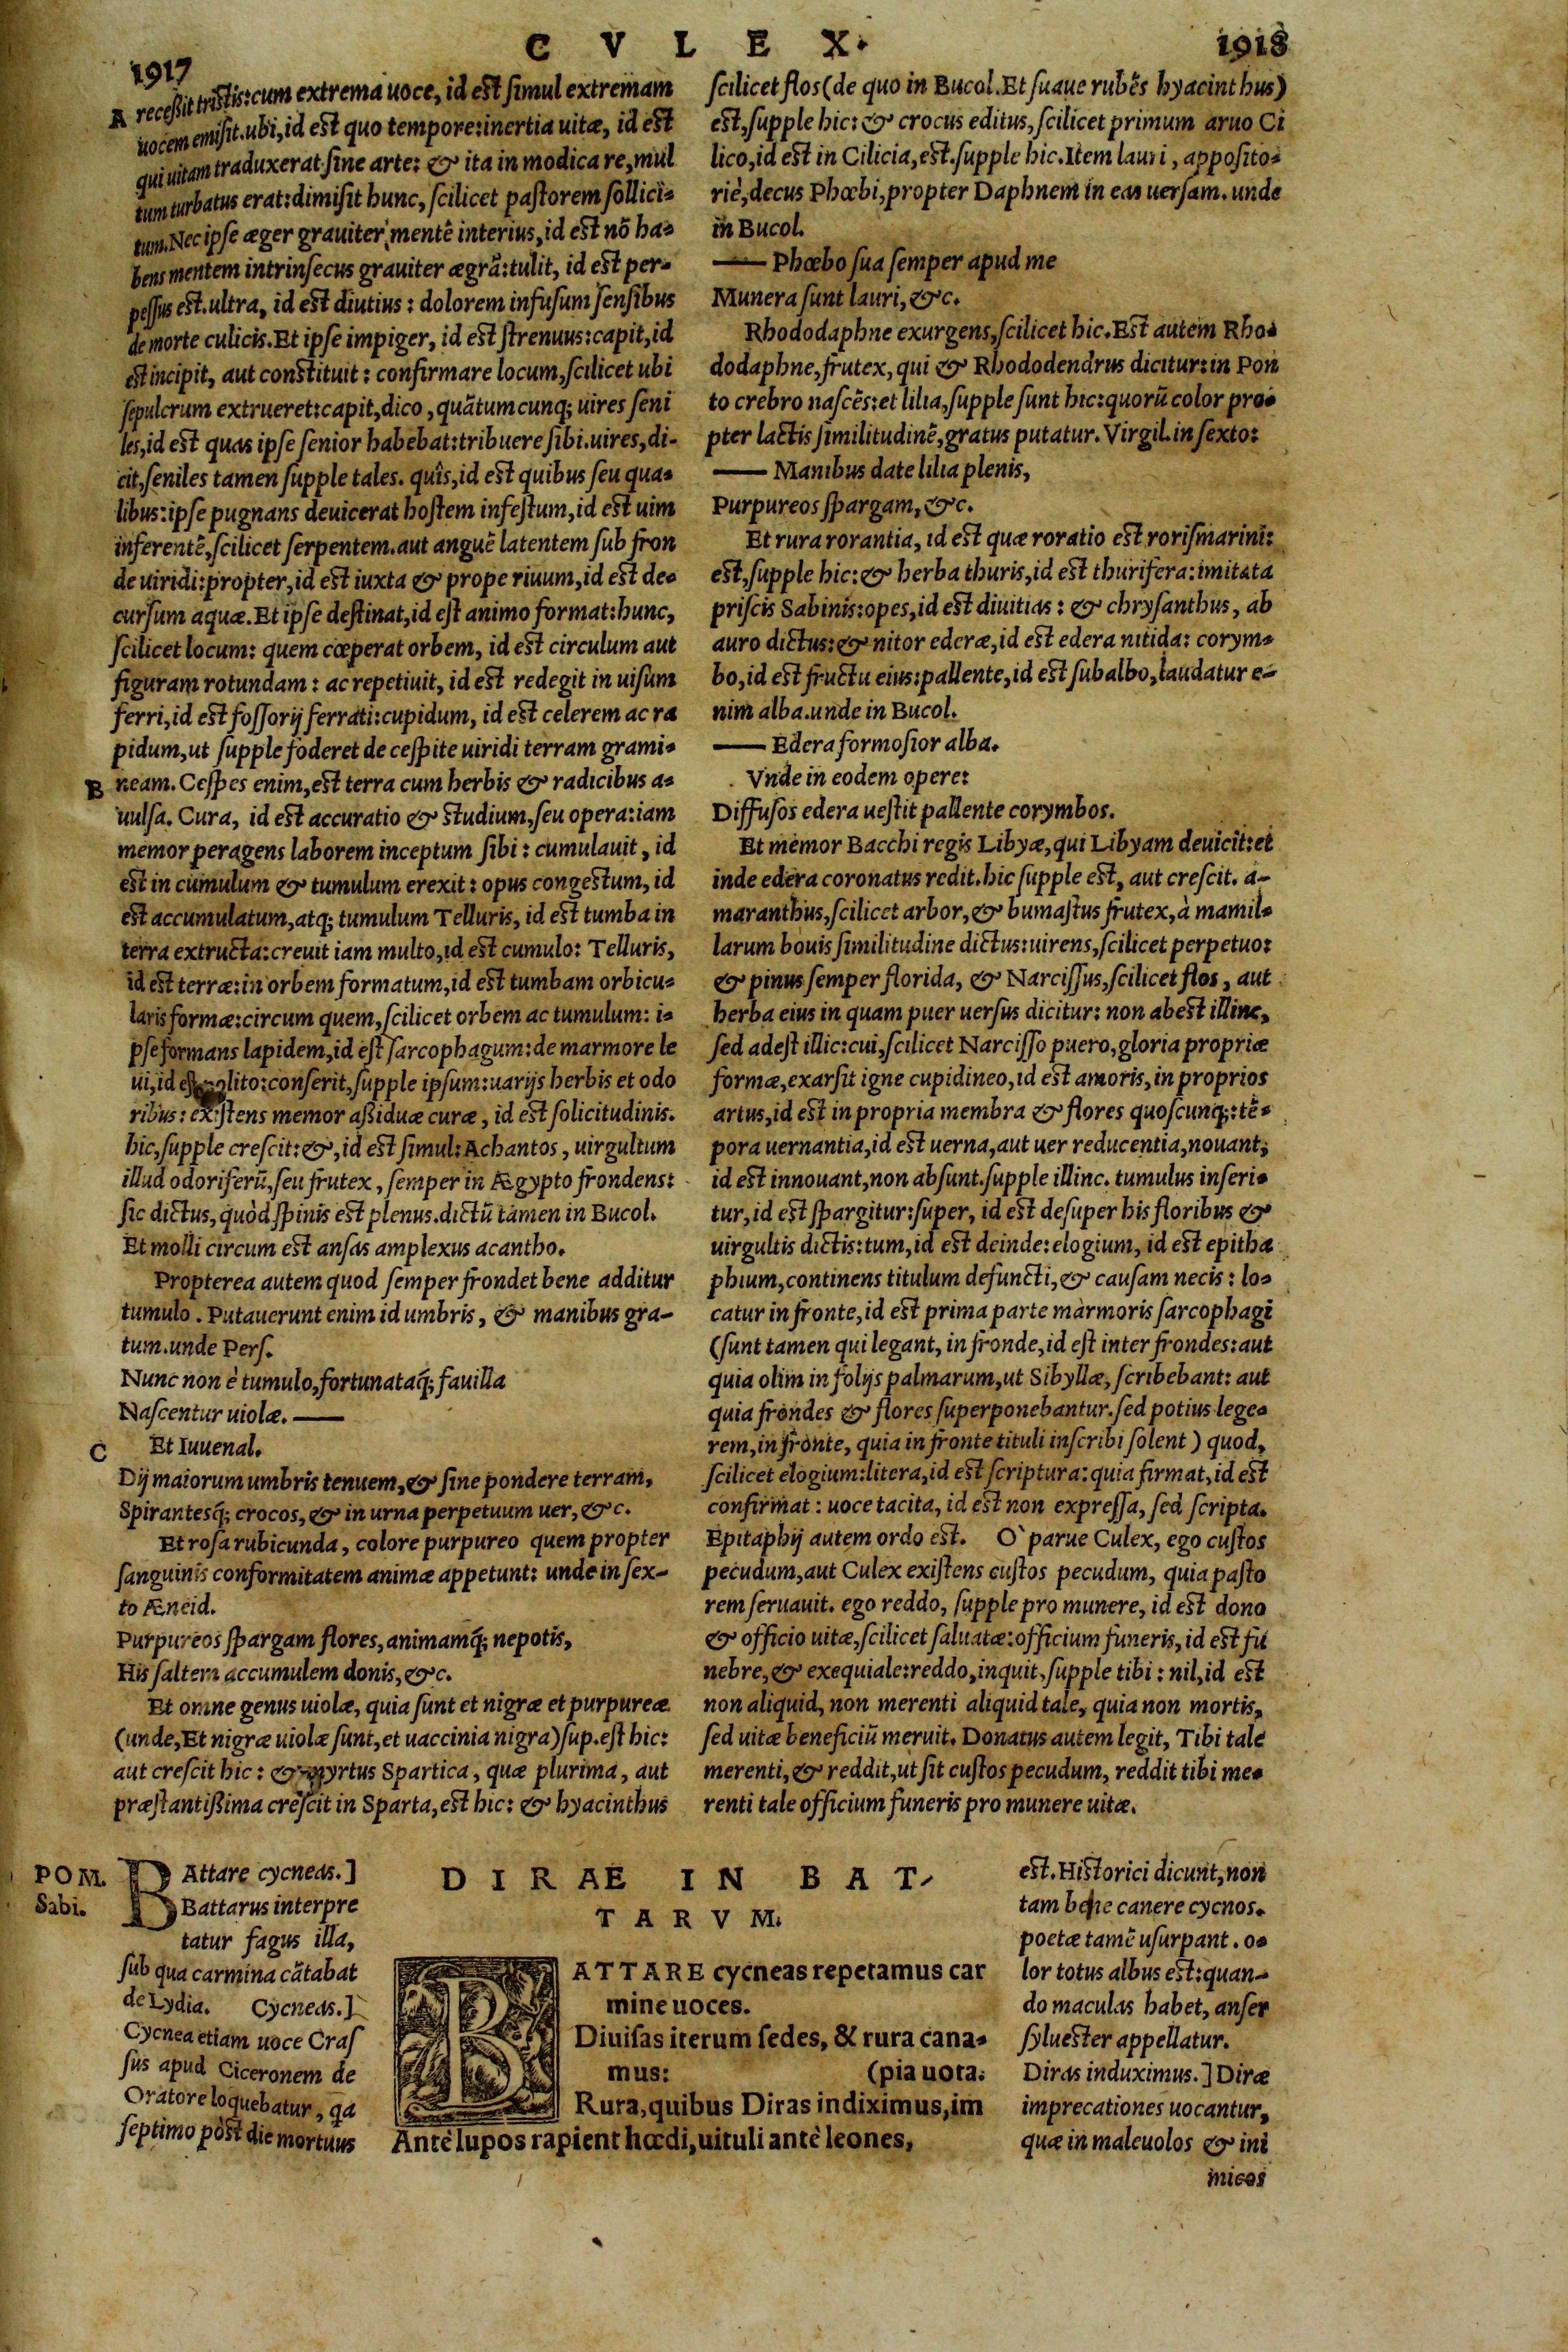 CVLEX.
1917
1918
A receßit tristis: cum extrema uoce, id est simul extremam
uocem emisit. ubi, id est quo tempore: inertia uitæ, id est
qui uitam traduxerat sine arte: & ita in modica re, mul
tum turbatus erat: dimisit hunc, scilicet pastorem sollici-
tum. Nec ipse æger grauiter mentē interius, id est nō ha-
bens mentem intrinsecus grauiter ægrā: tulit, id est per-
pessus est. ultra, id est diutius: dolorem infusum sensibus
de morte culicis. Et ipse impiger, id est strenuus: capit, id
est incipit, aut constituit: confirmare locum, scilicet ubi
sepulcrum extrueret: capit, dico, quātumcunq; uires seni
les, id est quas ipse senior habebat: tribuere sibi. uires, di-
cit, seniles tamen supple tales. quîs, id est quibus seu qua-
libus: ipse pugnans deuicerat hostem infestum, id est uim
inferentē, scilicet serpentem. aut anguē latentem sub fron
de uiridi: propter, id est iuxta & prope riuum, id est de-
cursum aquæ. Et ipse destinat, id est animo format: hunc,
scilicet locum: quem cœperat orbem, id est circulum aut
figuram rotundam: ac repetiuit, id est redegit in uisum
ferri, id est fossorij ferrati: cupidum, id est celerem ac ra
pidum, ut supple foderet de cespite uiridi terram grami-
B neam. Cespes enim, est terra cum herbis & radicibus a-
uulsa. Cura, id est accuratio & studium, seu opera: iam
memor peragens laborem inceptum sibi: cumulauit, id
est in cumulum & tumulum erexit: opus congestum, id
est accumulatum, atq; tumulum Telluris, id est tumba in
terra extructa: creuit iam multo, id est cumulo: Telluris,
id est terræ: in orbem formatum, id est tumbam orbicu-
laris formæ: circum quem, scilicet orbem ac tumulum: i-
pse formans lapidem, id est sarcophagum: de marmore le
ui, id est polito: conserit, supple ipsum: uarijs herbis et odo
ribus: existens memor aßiduæ curæ, id est solicitudinis.
hic, supple crescit: &, id est simul: Achantos, uirgultum
illud odoriferū, seu frutex, semper in Ægypto frondens:
sic dictus, quòd spinis est plenus. dictū tamen in Bucol.
Et molli circum est ansas amplexus acantho.
Propterea autem quod semper frondet bene additur
tumulo. Putauerunt enim id umbris, & manibus gra-
tum. unde Pers.
Nunc non è tumulo, fortunataq́; fauilla
Nascentur uiolæ. ——
C Et Iuuenal.
Dij maiorum umbris tenuem, & sine pondere terram,
Spirantesq́; crocos, & in urna perpetuum uer, &c.
Et rosa rubicunda, colore purpureo quem propter
sanguinis conformitatem animæ appetunt: unde in sex-
to Æneid.
Purpureos spargam flores, animamq́; nepotis,
His saltem accumulem donis, &c.
Et omne genus uiolæ, quia sunt et nigræ et purpureæ
(unde, Et nigræ uiolæ sunt, et uaccinia nigra) sup. est hic:
aut crescit hic: & myrtus Spartica, quæ plurima, aut
præstantißima crescit in Sparta, est hic: & hyacinthus
scilicet flos (de quo in Bucol. Et suaue rubēs hyacinthus)
est, supple hic: & crocus editus, scilicet primum aruo Ci
lico, id est in Cilicia, est. supple hic. Item lauri, apposito-
riè, decus Phœbi, propter Daphnem in eas uersam. unde
in Bucol.
—— Phœbo sua semper apud me
Munera sunt lauri, &c.
Rhododaphne exurgens, scilicet hic. Est autem Rho-
dodaphne, frutex, qui & Rhododendrus dicitur: in Pon
to crebro nascēs: et lilia, supple sunt hic: quorū color pro-
pter lactis similitudinē, gratus putatur. Virgil. in sexto:
—— Manibus date lilia plenis,
Purpureos spargam, &c.
Et rura rorantia, id est quæ roratio est rorismarini:
est, supple hic: & herba thuris, id est thurifera: imitata
priscis Sabinis: opes, id est diuitias: & chrysanthus, ab
auro dictus: & nitor ederæ, id est edera nitida: corym-
bo, id est fructu eius: pallente, id est subalbo, laudatur e-
nim alba. unde in Bucol.
—— Edera formosior alba.
Vnde in eodem opere:
Diffusos edera uestit pallente corymbos.
Et memor Bacchi regis Libyæ, qui Libyam deuicit: et
inde edera coronatus redit. hic supple est, aut crescit. a-
maranthus, scilicet arbor, & bumastus frutex, à mamil-
larum bouis similitudine dictus: uirens, scilicet perpetuo:
& pinus semper florida, & Narcissus, scilicet flos, aut
herba eius in quam puer uersus dicitur: non abest illinc,
sed adest illic: cui, scilicet Narcisso puero, gloria propriæ
formæ, exarsit igne cupidineo, id est amoris, in proprios
artus, id est in propria membra & flores quoscunq;: tē-
pora uernantia, id est uerna, aut uer reducentia, nouant,
id est innouant, non absunt. supple illinc. tumulus inseri-
tur, id est spargitur: super, id est desuper his floribus &
uirgultis dictis: tum, id est deinde: elogium, id est epitha
phium, continens titulum defuncti, & causam necis: lo-
catur in fronte, id est prima parte marmoris sarcophagi
(sunt tamen qui legant, in fronde, id est inter frondes: aut
quia olim in folijs palmarum, ut Sibyllæ, scribebant: aut
quia frondes & flores superponebantur. sed potius lege-
rem, in fronte, quia in fronte tituli inscribi solent) quod,
scilicet elogium: litera, id est scriptura: quia firmat, id est
confirmat: uoce tacita, id est non expressa, sed scripta.
Epitaphij autem ordo est. O` parue Culex, ego custos
pecudum, aut Culex existens custos pecudum, quia pasto
rem seruauit. ego reddo, supple pro munere, id est dono
& officio uitæ, scilicet saluatæ: officium funeris, id est fu
nebre, & exequiale: reddo, inquit, supple tibi: nil, id est
non aliquid, non merenti aliquid tale, quia non mortis,
sed uitæ beneficiū meruit. Donatus autem legit, Tibi tale
merenti, & reddit, ut sit custos pecudum, reddit tibi me-
renti tale officium funeris pro munere uitæ.
POM.
Sabi.
BAttare cycneas.]
Battarus interpre
tatur fagus illa,
sub qua carmina cātabat
de Lydia. Cycneas.]
Cycnea etiam uoce Cras
sus apud Ciceronem de
Oratore loquebatur, qa
septimo pòst die mortuus
DIRAE IN BAT-
TARVM.
BATTARE cycneas repetamus car
mine uoces.
Diuisas iterum sedes, & rura cana-
mus: (pia uota.
Rura, quibus Diras indiximus, im
Antè lupos rapient hœdi, uituli antè leones,
est. Historici dicunt, non
tam bene canere cycnos.
poetæ tamē usurpant. o-
lor totus albus est: quan-
do maculas habet, anser
syluester appellatur.
Diras induximus.] Diræ
imprecationes uocantur,
quæ in maleuolos & ini
micos